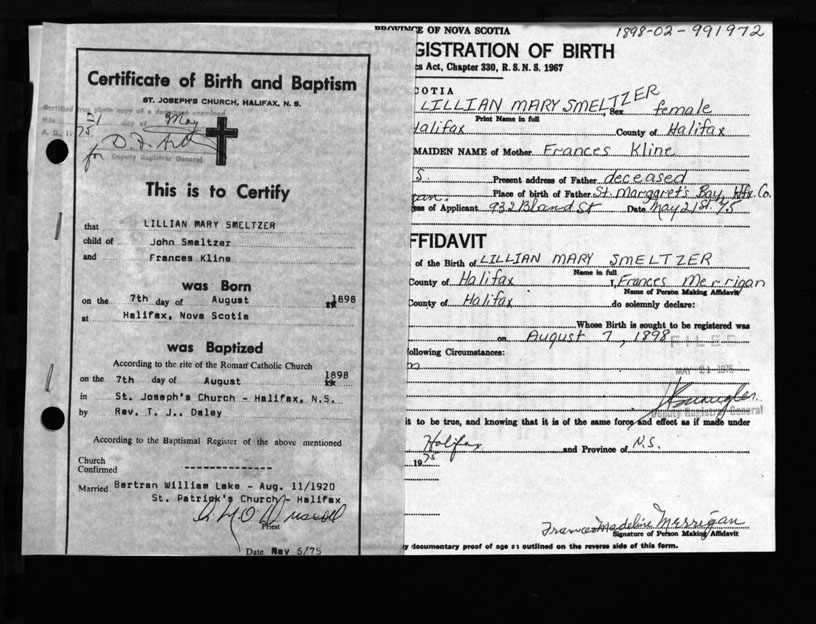 Certificate of Birth and Baptism
ST. JOSEPH'S CHURCH, HALIFAX, N. S.
Certified true photo copy of a document examined
this 21 day of May
A. D., 1975
for Deputy Registrar General
This is to Certify
that LILLIAN MARY SMELTZER
child of John Smeltzer
and Frances Kline
was Born
on the 7th day of August 1898
at Halifax, Nova Scotia
was Baptized
According to the rite of the Roman Catholic Church
on the 7th day of August 1898
in St. Joseph's Church - Halifax, N.S.
by Rev. T. J.. Daley
According to the Baptismal Register of the above mentioned
Church
Confirmed -------------
Married Bertran William Lake - Aug. 11/1920
St. Patrick's Church - Halifax
Priest
Date May 6/75
PROVINCE OF NOVA SCOTIA
1898-02-991972
GISTRATION OF BIRTH
cs Act, Chapter 330, R. S. N. S. 1967
COTIA
LILLIAN MARY SMELTZER Sex female
Print Name in full
Halifax County of Halifax
MAIDEN NAME of Mother Frances Kline
S. Present address of Father deceased
gan. Place of birth of Father St. Margaret's Bay, Hfx Co.
ess of Applicant 932 Bland St Date May 21st. 75
FFIDAVIT
of the Birth of LILLIAN MARY SMELTZER
Name in full
County of Halifax I, Frances Merrigan
Name of Person Making Affidavit
County of Halifax do solemnly declare:
Whose Birth is sought to be registered was
on August 7, 1898
FILED
ollowing Circumstances:
MAY 21 1975
Deputy Registrar General
it to be true, and knowing that it is of the same force and effect as if made under
Halifax and Province of N.S.
1975
Frances Madeline Merrigan
Signature of Person Making Affidavit
y documentary proof of age as outlined on the reverse side of this form.